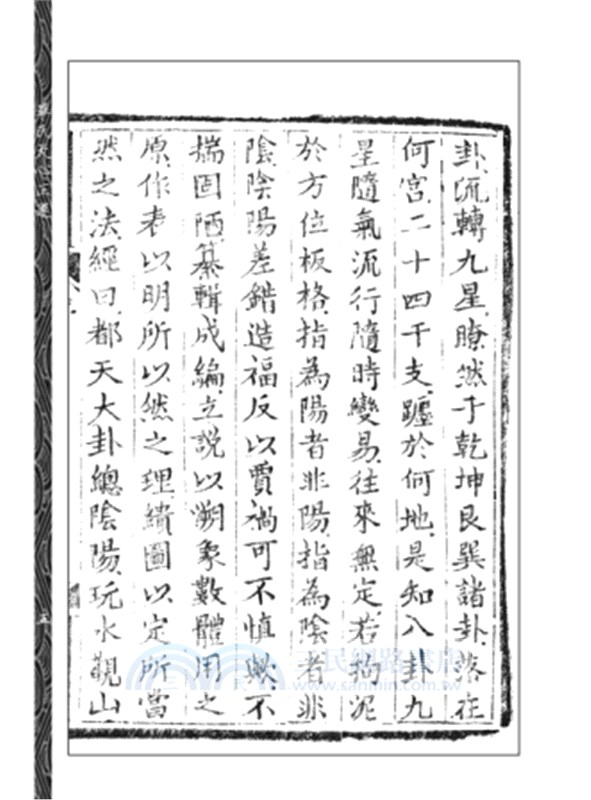 卦流轉九星瞭然于乾坤艮巽諸卦落在
何宮二十四干支躔於何地是知八卦九
星隨氣流行隨時變易往來無定若拘泥
於方位板格指為陽者非陽指為陰者非
陰陰陽差錯造福反以賈禍可不慎歟不
揣固陋纂輯成編立說以溯象數體用之
原作表以明所以然之理繢圖以定所當
然之法經曰都天大卦總陰陽玩水觀山
五
三民網路書店
www.sanmin.com.tw